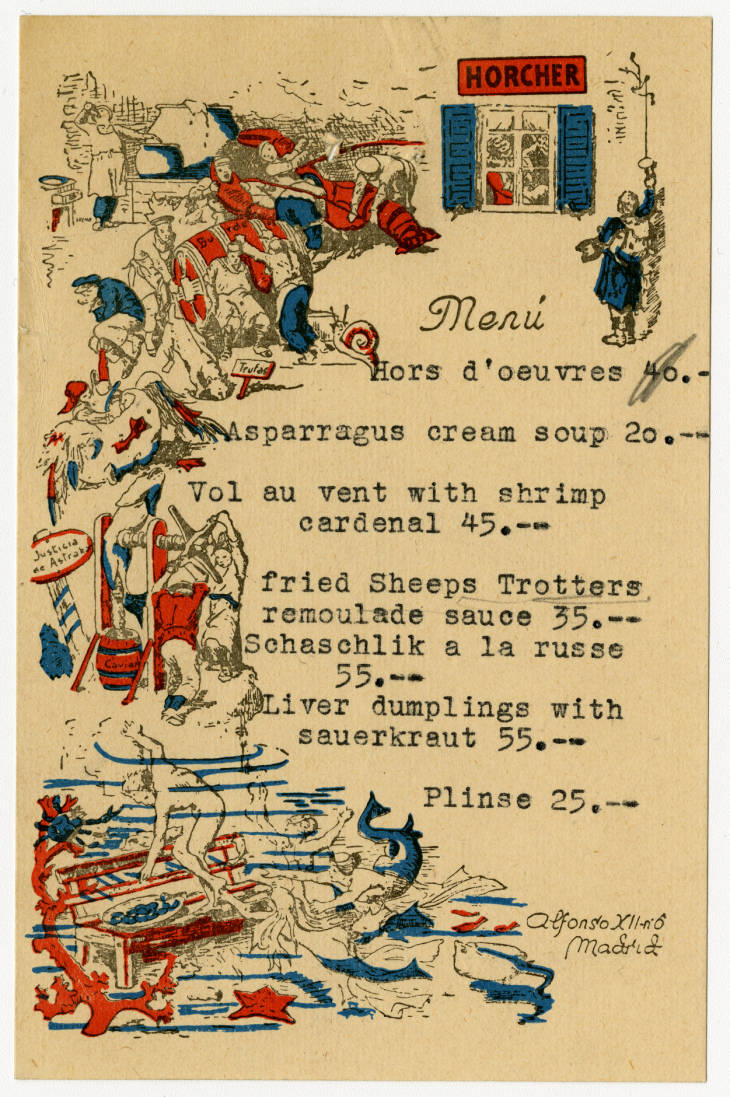 HORCHER
Menú
Trufas
Hors d'oeuvres 40.-
Asparragus cream soup 20.--
Vol au vent with shrimp
cardenal 45.--
Justicia
de Astrak
fried Sheeps Trotters
remoulade sauce 35.--
Schaschlik a la russe
55.--
Caviar
Liver dumplings with
sauerkraut 55.--
Plinse 25.--
Alfonso XII-nº6
Madrid